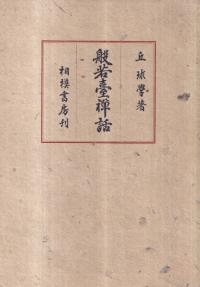 丘球學著
般若臺禪話
相模書房刊